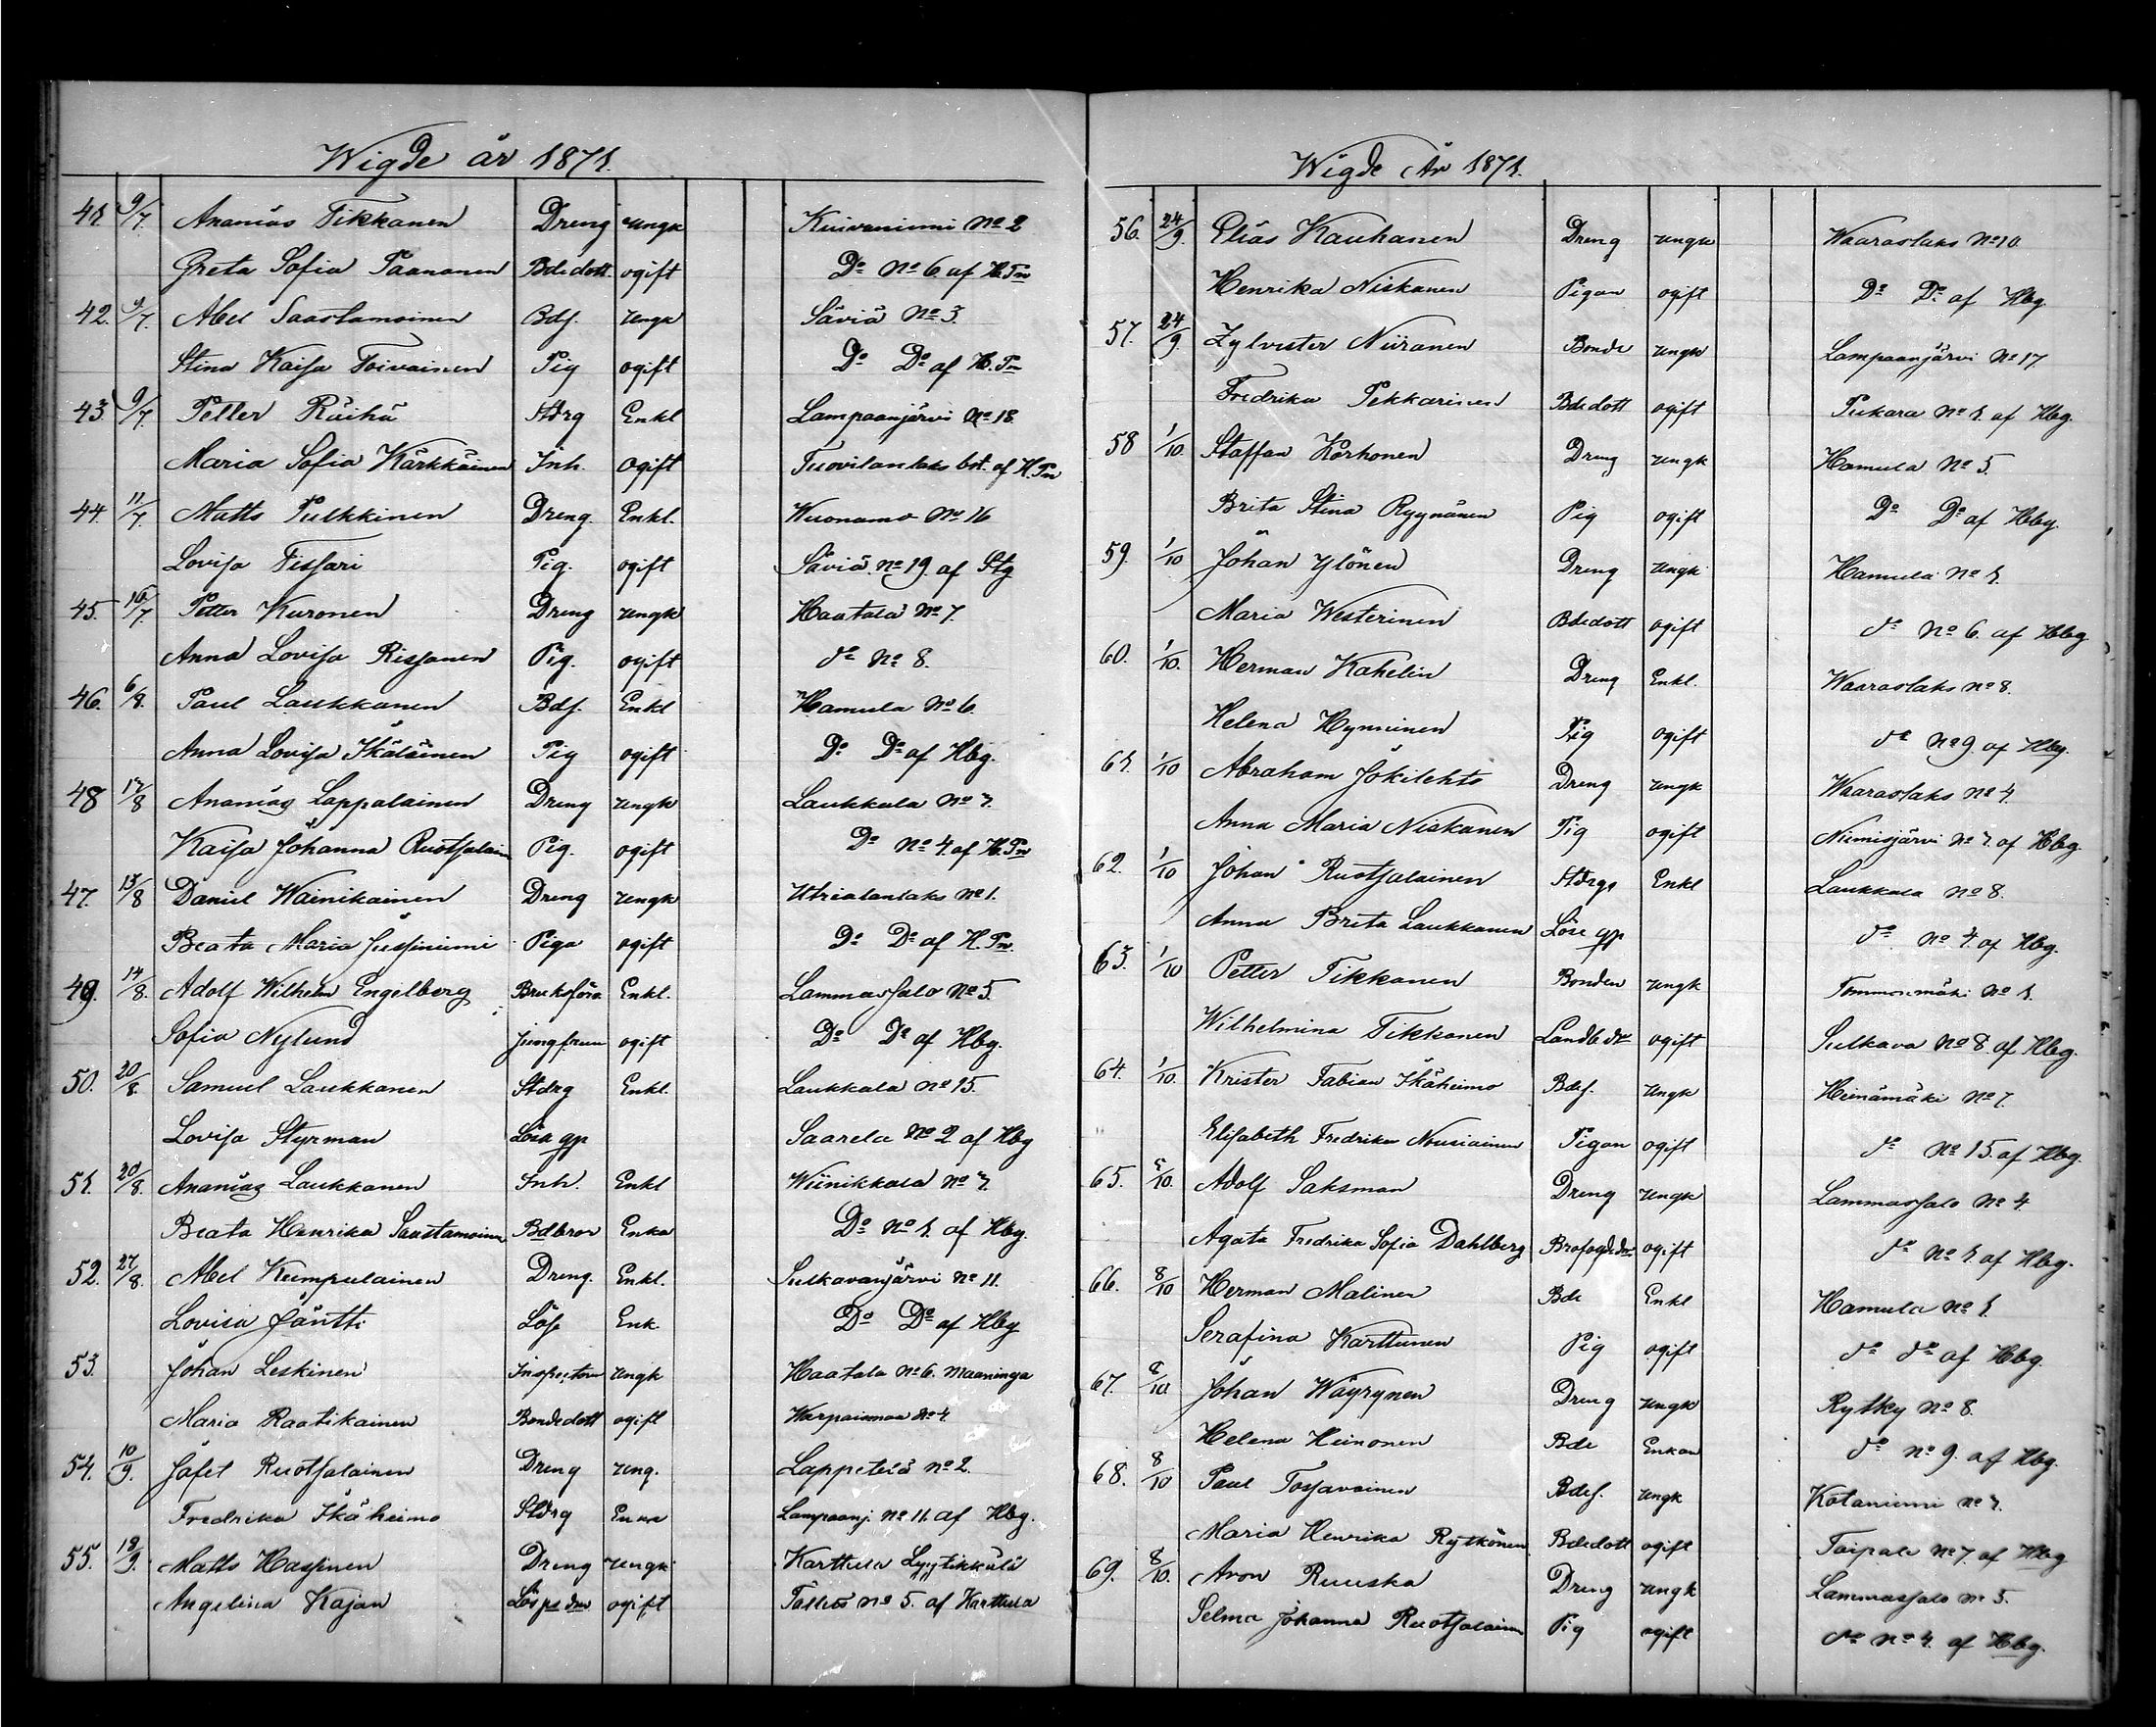 Wigde år 1871.
41. 9/7. Ananias Tikkanen Dreng ungk Kuivaniemi No 2
Greta Sofia Paananen Bdedott. ogift Do No 6 af H.Pn
42. 9/7. Abel Saastamoinen Bdf. Unga Säviä No 3.
Stina Kaisa Toivainen Pig ogift Do Do af H.Pn
43. 9/7. Petter Räihä Stdrg Enkl Lampaanjärvi No 18.
Maria Sofia Kärkkäinen Inh. ogift Tuovilanlaks bst. af H.Pn
44. 11/7. Matts Pulkkinen Dreng. Enkl. Wuonamo No 16
Lovisa Tissari Pig. ogift Säviä. No 19. af Stg
45. 16/7. Petter Kuronen Dreng ungk Haatala No 7.
Anna Lovisa Rissanen Pig. ogift do No 8.
46. 6/8. Paul Laukkanen Bdf. Enkl Hamula No 6.
Anna Lovisa Ikäläinen Pig ogift Do Do af Hbg.
48 17/8 Ananias Lappalainen Dreng ungk Laukkala No 7.
Kaisa Johanna Ruotsalain Pig. ogift Do No 4. af H.Pn
47. 13/8 Daniel Wainikainen Dreng ungk Utrialanlaks No 1.
Beata Maria Jussiniemi Piga ogift Do Do af H.Pn.
49. 14/8. Adolf Wilhelm Engelberg Bruksförv. Enkl. Lammassalo No 5.
Sofia Nylund Jungfrun ogift Do Do af Hbg.
50. 20/8. Samuel Laukkanen Stdrg Enkl. Laukkala No 15.
Lovisa Styrman Lösa qp Saarela No 2 af Hbg
51. 20/8. Ananias Laukkanen Inh. Enkl Wiinikkala No 7.
Beata Henrika Saastamoinen Bdbror Enka Do No 1. af Hbg.
52. 27/8. Abel Kumpulainen Dreng. Enkl. Sulkavanjärvi No 11.
Lovisa Jäntti Lös Enk. Do Do af Hbg
53. Johan Leskinen Inspector ungk Haatala No 6. Maaninga
Maria Raatikainen Bondedott ogift No 4.
54. 10/9. Jafet Ruotsalainen Dreng ung. Lappetelä No 2.
Fredrika Ikäheimo Stdrg Enka Lampaanj No 11. af Hbg.
55. 18/9. Matts Hassinen Dreng ungk Karttula Lyytikkälä
Angelina Kajan ogift Talluo No 5. af Karttula
Wigde År 1871.
56. 24/9. Elias Kauhanen Dreng ungk Waaraslaks No 10.
Henrika Niskanen Pigan ogift Do Do af Hbg.
57. 24/9. Zylvester Niiranen Bonde ungk Lampaanjärvi No 17.
Fredrika Pekkarinen Bdedott ogift Pukara No 1. af Hbg.
58 1/10. Staffan Korhonen Dreng ungk Hamula No 5.
Brita Stina Ryynänen Pig ogift Do Do af Hbg.
59. 1/10 Johan Ylönen Dreng ungk Hamula No 1.
Maria Westerinen Bdedott ogift do No 6. af Hbg
60. 1/10. Herman Kahelin Dreng Enkl. Waaraslaks No 8.
Helena Hynninen Pig ogift do No 9. af Hbg.
61. 1/10 Abraham Jokilehto Dreng ungk Waaraslaks No 4.
Anna Maria Niskanen Pig ogift Niemisjärvi No 7. af Hbg.
62. 1/10 Johan Ruotsalainen Stdrge Enkl Laukkala No 8.
Anna Brita Laukkanen Löse qp do No 4. af Hbg.
63. 1/10 Petter Tikkanen Bonden ungk Tommonmäki No 1.
Wilhelmina Tikkanen Landbdr ogift Sulkava No 8. af Hbg.
64. 1/10. Krister Fabian Ikäheimo Bdef. ungk Heinämäki No 7.
Elisabeth Fredrika Nousiainen Pigan ogift do No 15. af Hbg.
65. 5/10. Adolf Saksman Dreng ungk Lammassalo No 4
Agata Fredrika Sofia Dahlberg ogift do No 1. af Hbg.
66. 8/10 Herman Malinen Bde Enkl Hamula No 1
Serafina Karttunen Pig ogift do do af Hbg.
67. 8/10 Johan Wäyrynen Dreng ungk Rytky No 8.
Helena Heinonen Bde Enkan do No 9. af Hbg.
68. 8/10 Paul Tossavainen Bdef. ungk Kotaniemi No 7.
Maria Henrika Rytkönen Bdedott ogift Taipale No 7. af Hbg
69. 8/10. Aron Ruuska Dreng ungk Lammassalo No 5.
Selma Johanna Ruotsalainen Pig ogift do No 4. af Hbg.